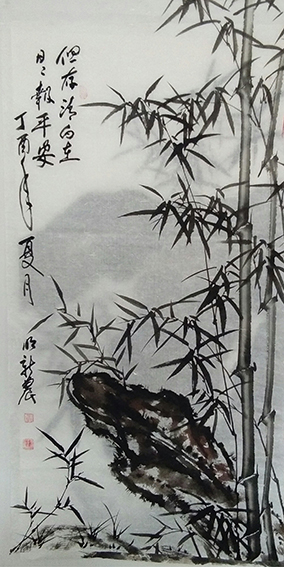 但存清白在
日日報平安
丁酉年夏月
新農